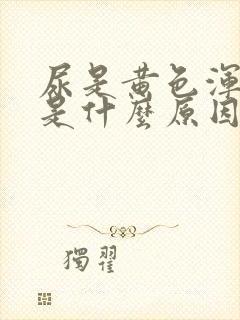 尿是黄色渾
是什麼原因
獨翟